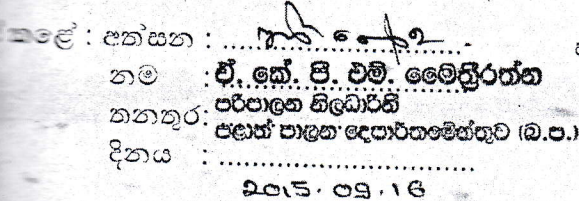 කළේ : අත්සන : ..............................
නම : ඒ. කේ. පී. එම්. මෛත්‍රීරත්න
තනතුර: පරිපාලන නිලධාරිනි
පළාත් පාලන දෙපාර්තමේන්තුව (බ.ප.)
දිනය : ..............................
2015.09.16